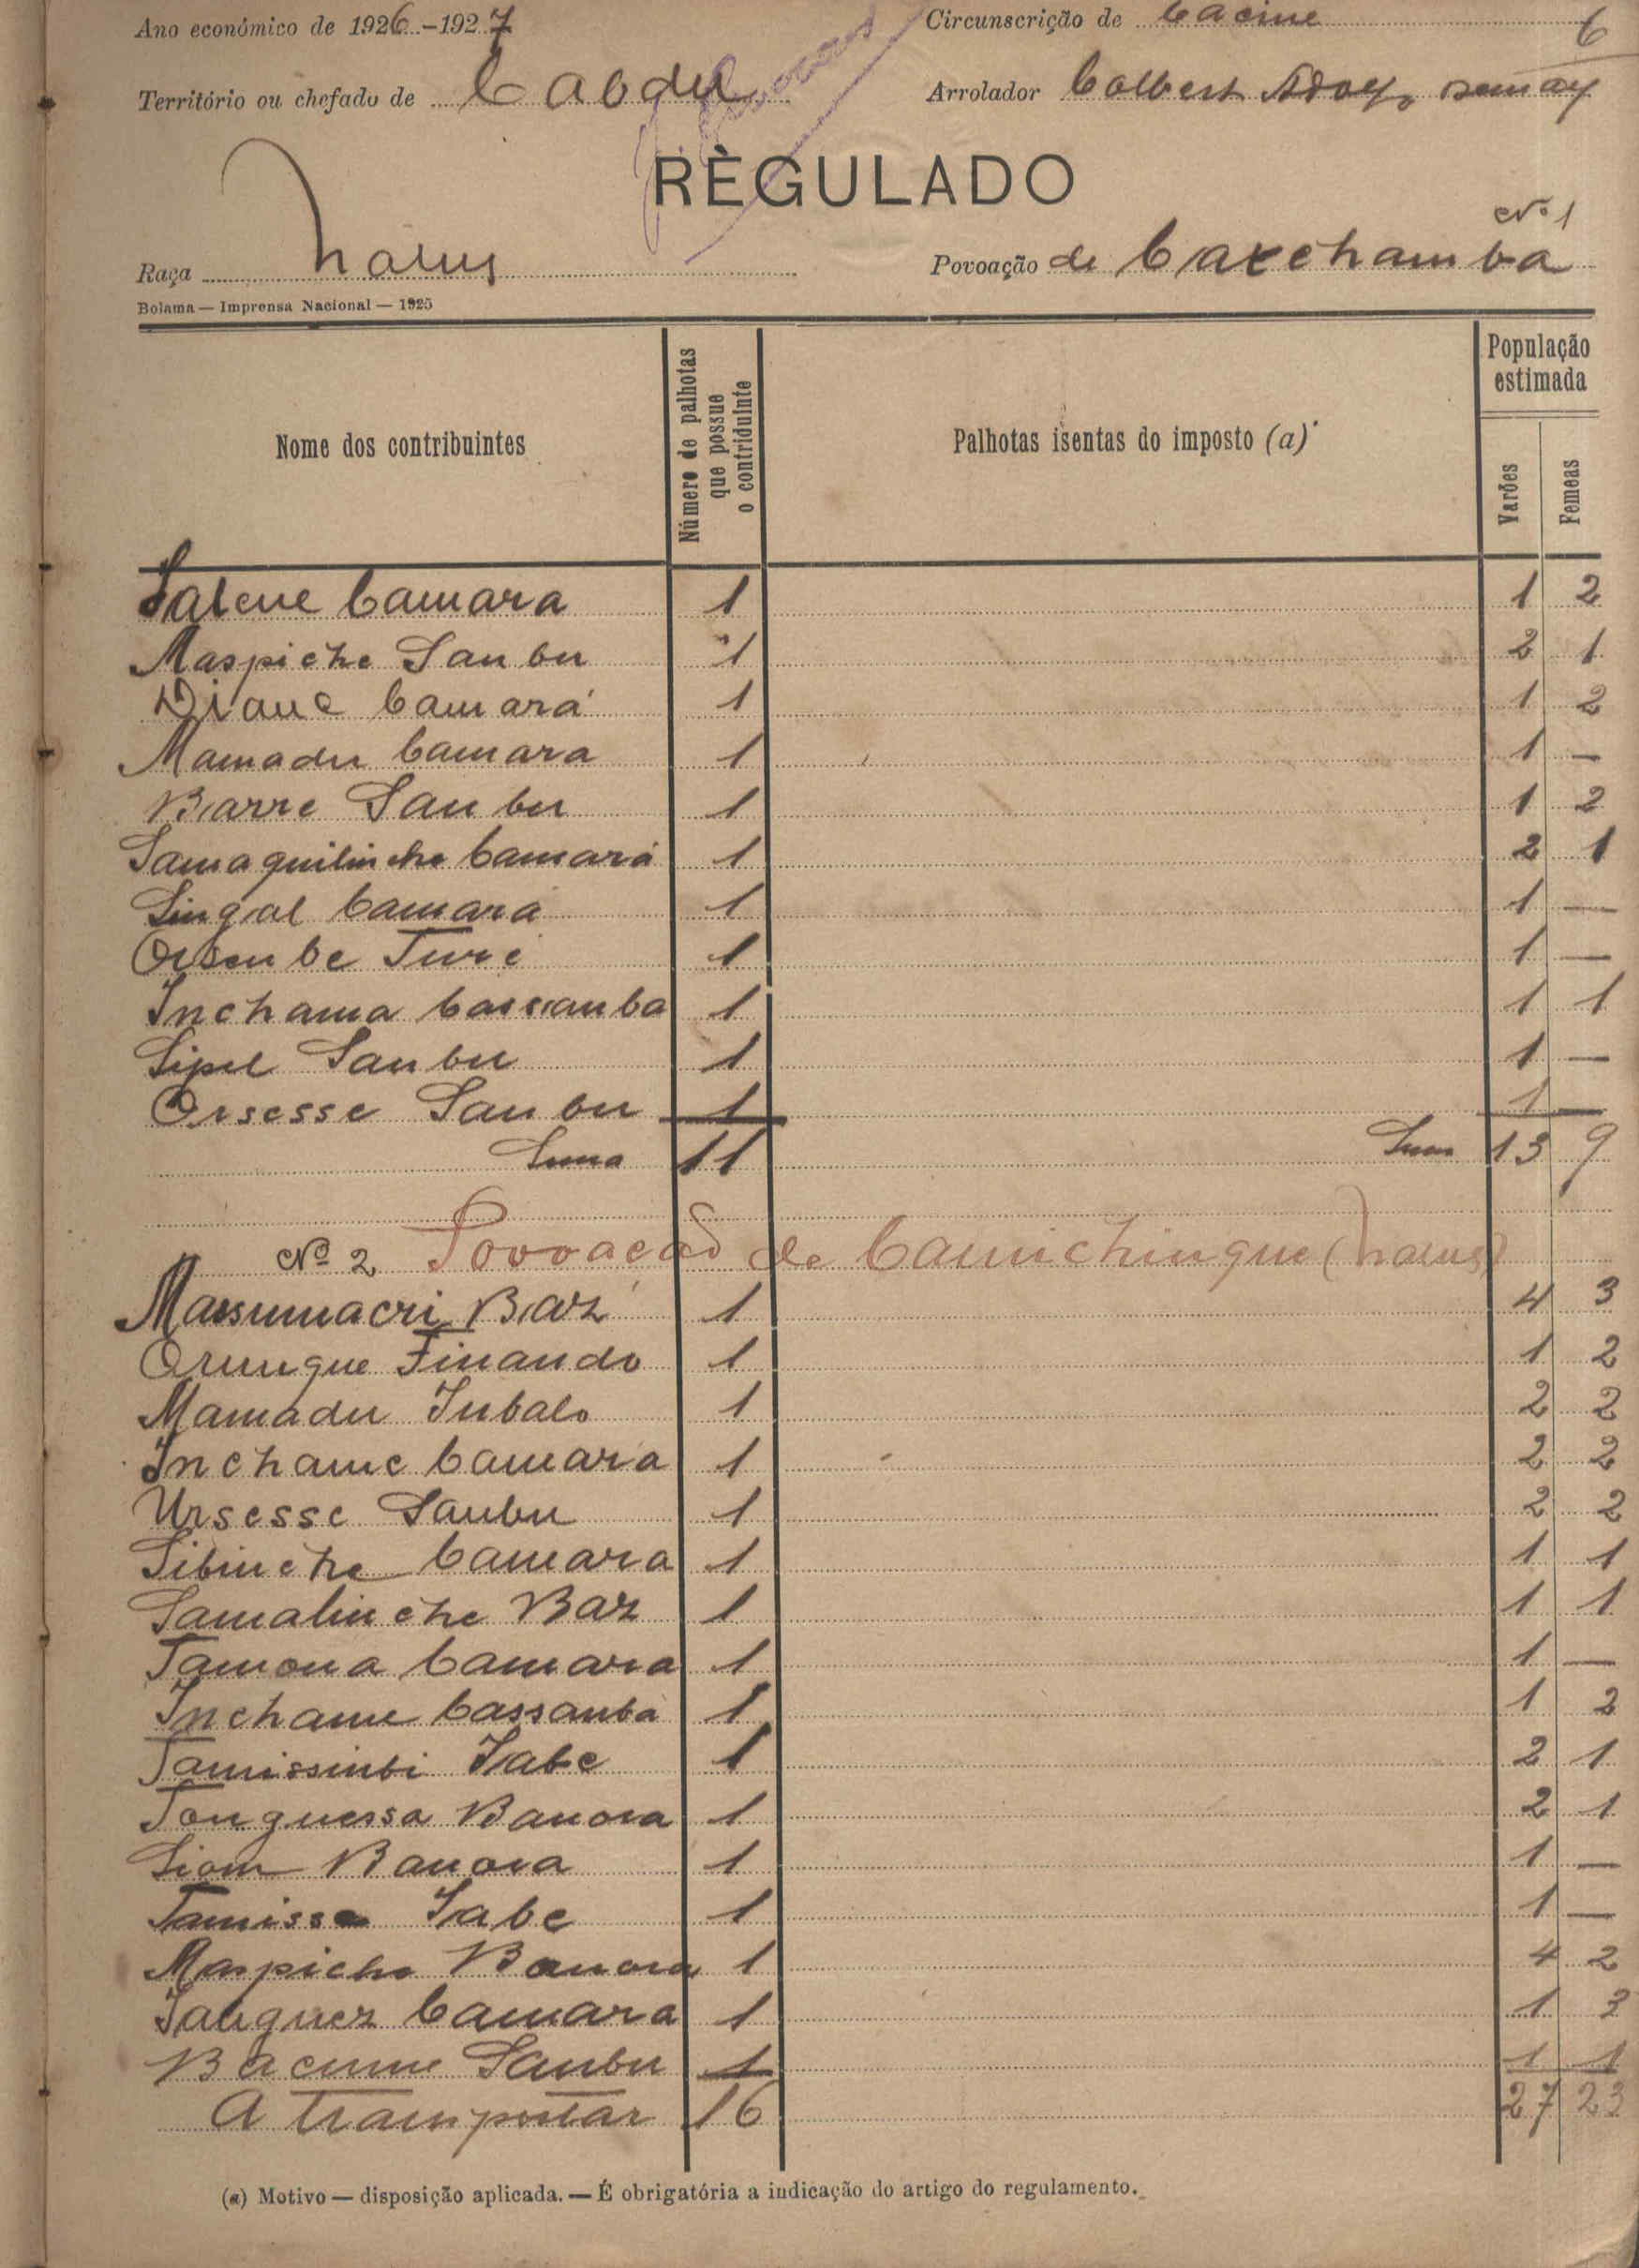 Ano económico de 1926-1927 Circunscrição de Cacine 6
Território ou chefado de Arrolador Colbert
RÈGULADO
Nº 1
Raça Nalus Povoação de
Bolama — Imprensa Nacional — 1925
Nome dos contribuintes Número de palhotas que possue o contriduinte Palhotas isentas do imposto (a) População estimada Varões Femeas
Camara 1 1 2
Maspiche Sanbu 1 2 1
Diane Camará 1 1 2
Mamadu Camara 1 1 —
Barre Sanbu 1 1 2
Samaquilinche Camará 1 2 1
Lingal Camara 1 1 —
Ture 1 1 —
Inchama Cassanba 1 1 1
Sanbu 1 1 —
Orsesse Sanbu 1 1 —
Suma 11 Suma 13 9
Nº 2 Povoação de Camichingue (Nalus)
Massumacri Baz 1 4 3
Orunque Finando 1 1 2
Mamadu Jubalo 1 2 2
Inchame Camara 1 2 2
Ursesse Sanbu 1 2 2
Sibinche Camara 1 1 1
Samalinche Baz 1 1 1
Tamona Camara 1 1 —
Inchame Cassanba 1 1 2
Tamissinbi Iabe 1 2 1
Tonguessa Banora 1 2 1
Siom Banora 1 1 —
Tamissa Iabe 1 1 —
Maspiche Banora 1 4 2
Camara 1 1 3
Bacume Sanbu 1 1 1
A transportar 16 27 23
(a) Motivo — disposição aplicada. — É obrigatória a indicação do artigo do regulamento.